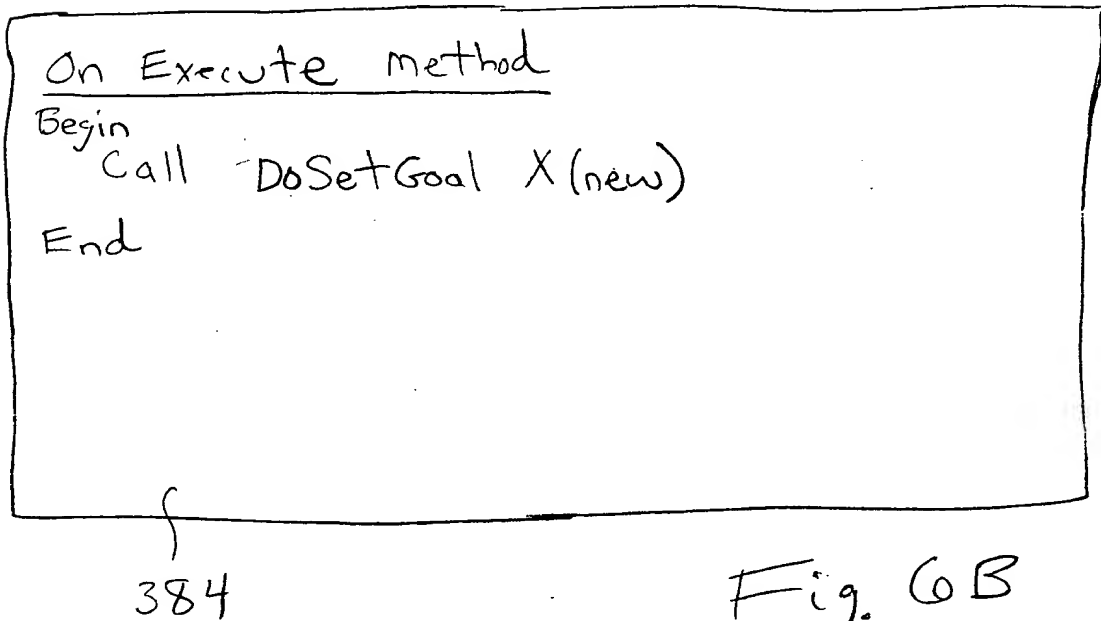 On Execute method
Begin
Call DoSetGoal X (new)
End
384
Fig. 6B